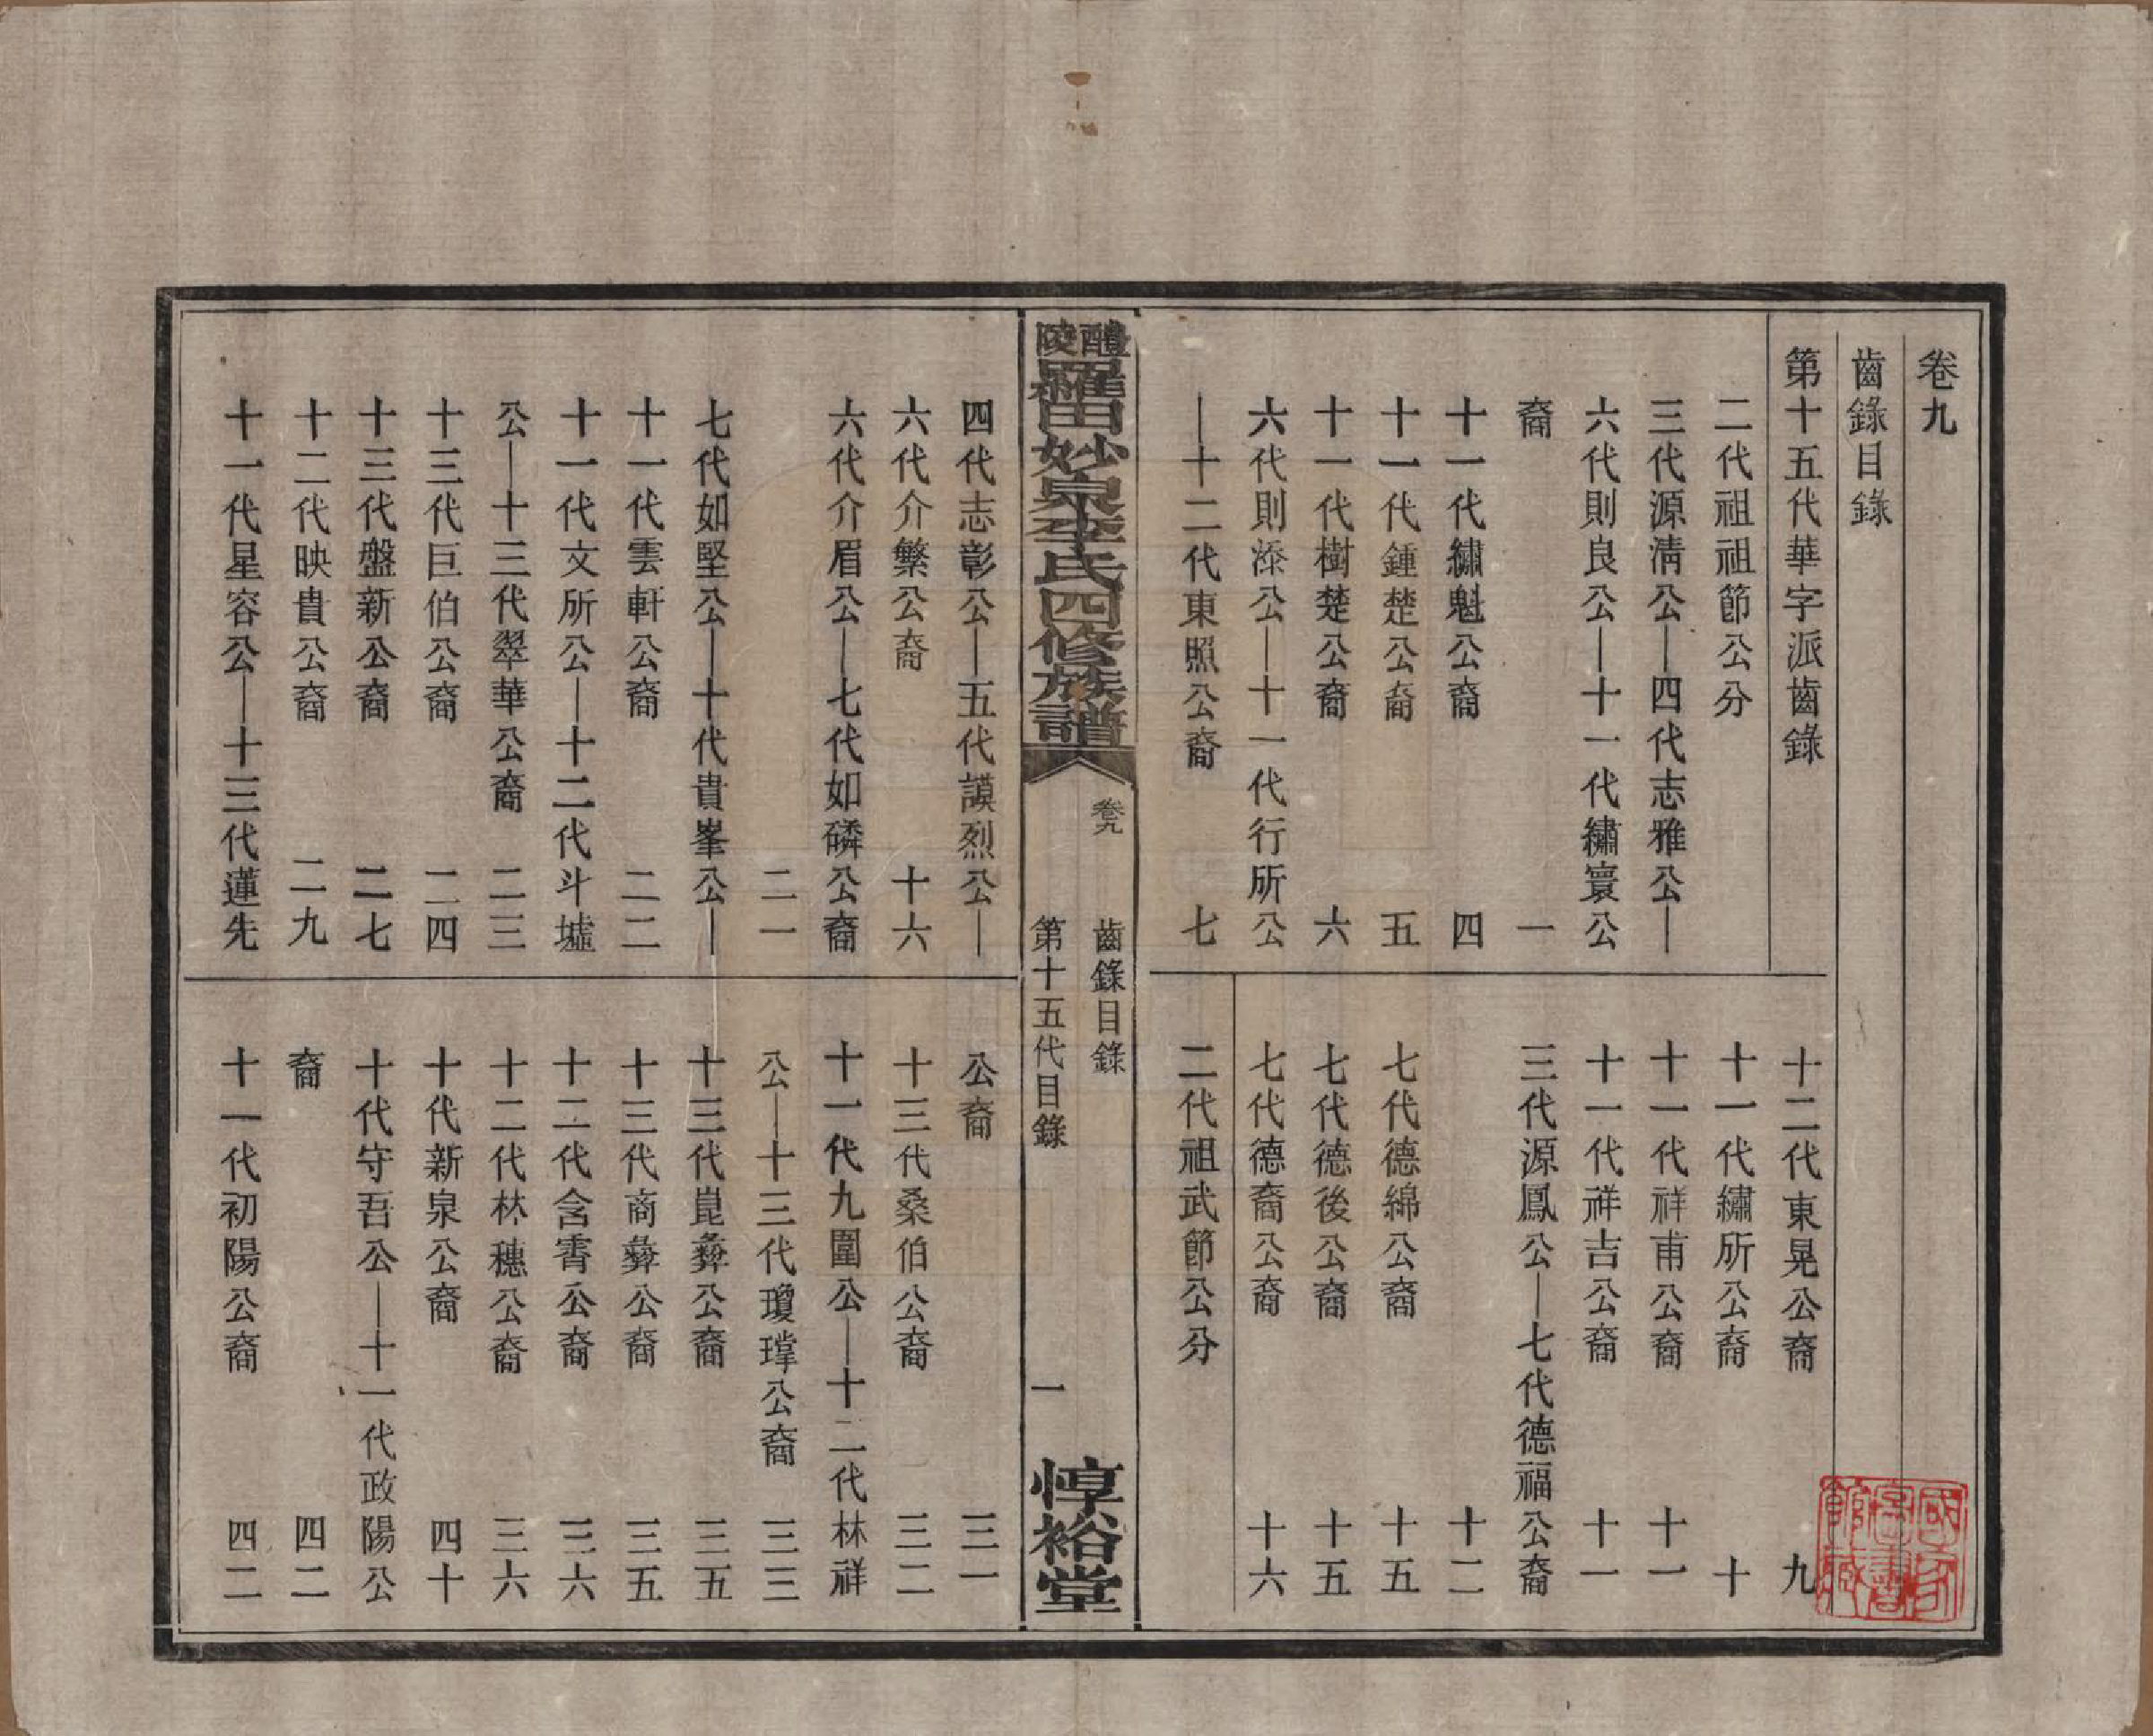 卷九
齒錄目錄
第十五代華字派齒錄
二代祖祖節公分
三代源清公—四代志雅公—
六代則良公—十一代繡寰公
裔 一
十一代繡魁公裔 四
十一代鍾楚公裔 五
十一代樹楚公裔 六
六代則漆公—十一代行所公
—十二代東照公裔 七
十二代東晃公裔 九
十一代繡所公裔 十
十一代祥甫公裔 十一
十一代祥吉公裔 十一
三代源鳳公—七代德福公裔
十二
七代德綿公裔 十五
七代德後公裔 十五
七代德裔公裔 十六
二代祖武節公分
醴陵羅田妙泉李氏四修族譜
卷九 齒錄目錄
第十五代目錄 一
惇裕堂
四代志彰公—五代謨烈公—
六代介繁公裔 十六
六代介眉公—七代如磷公裔
二一
七代如堅公—十代貴峯公—
十一代雲軒公裔 二二
十一代文所公—十二代斗墟
公—十三代翠華公裔 二三
十三代巨伯公裔 二四
十三代盤新公裔 二七
十二代映貴公裔 二九
十一代星容公—十三代蓮先
公裔 三一
十三代桑伯公裔 三二
十一代九圍公—十二代林祥
公—十三代瓊瑋公裔 三三
十三代崑彜公裔 三五
十三代商彜公裔 三五
十二代含霄公裔 三六
十二代林穗公裔 三六
十代新泉公裔 四十
十代守吾公—十一代政陽公
裔 四二
十一代初陽公裔 四二
國家圖書館藏